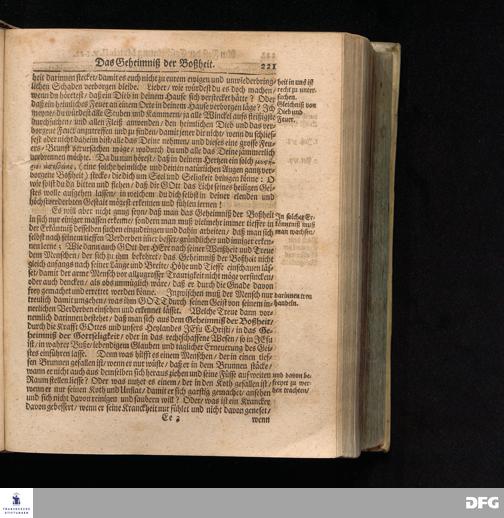 Das Geheimniß der Boßheit.
221
heit darinnen stecket/ damit es euch nicht zu eurem ewigen und unwiederbring-
lichen Schaden verborgen bleibe. Lieber/ wie würdest du es doch machen/
wenn du höretest/ daß ein Dieb in deinem Hause sich verstecket hätte? Oder
daß ein heimliches Feuer an einem Orte in deinem Hause verborgen läge? Ich
meyne/ du würdest alle Stuben und Kammern/ ja alle Winckel aufs fleißigste
durchsuchen/ und allen Fleiß anwenden/ den heimlichen Dieb und das ver-
borgene Feuer anzutreffen und zu finden/ damit jener dir nicht/ wenn du schlief-
fest oder nicht daheim bist/ alle das Deine nehme/ und dieses eine grosse Feu-
ers-Brunst verursachen möge/ wodurch du und alle das Deine jämmerlich
verbrennen möchte. Da du nun hörest/ daß in deinem Hertzen ein solch
(eine solche heimliche und deinen natürlichen Augen gantz ver-
borgene Boßheit) stecke/ die dich um Seel und Seligkeit bringen könne: O
wie solst du da bitten und flehen/ daß dir GOtt das Licht seines heiligen Gei-
stes wolle aufgehen lassen/ in welchem du dich selbst in deiner elenden und
höchstverderbten Gestalt mögest erkennen und fühlen lernen!
Es will aber nicht gnug seyn/ daß man das Geheimniß der Boßheit
in sich nur einiger massen erkenne/ sondern man muß vielmehr immer tieffer in
der Erkäntniß desselben suchen einzudringen und dahin arbeiten/ daß man sich
selbst nach seinem tieffen Verderben immer besser/ gründlicher und inniger erken-
nen lerne. Wie dann auch GOtt der HErr nach seiner Weisheit und Treue
dem Menschen/ der sich zu ihm bekehret/ das Geheimniß der Boßheit nicht
gleich anfangs nach seiner Länge und Breite/ Höhe und Tieffe einschauen läs-
set/ damit der arme Mensch vor allzugrosser Traurigkeit nicht möge versincken/
oder auch dencken/ als obs unmöglich wäre/ daß er durch die Gnade davon
frey gemachet und errettet werden könne. Inzwischen muß der Mensch nur
treulich damit umgehen/ was ihm GOTT durch seinen Geist von seinem in-
nerlichen Verderben einsehen und erkennen lässet. Welche Treue dann vor-
nemlich darinnen bestehet/ daß man sich aus dem Geheimniß der Boßheit/
durch die Krafft GOttes und unsers Heylandes JEsu Christi/ in das Ge-
heimniß der Gottseligkeit/ oder in das rechtschaffene Wesen/ so in JEsu
ist/ in wahrer Busse/ lebendigem Glauben und täglicher Erneuerung des Gei-
stes einführen lasse. Denn was hilfft es einem Menschen/ der in einen tief-
fen Brunnen gefallen ist/ wenn er nur wüste/ daß er in dem Brunnen stäcke/
wann er nicht auch aus demselben sich heraus ziehen und seine Füsse auf weiten
Raum stellen liesse? Oder was nutzet es einem/ der in den Koth gefallen ist/
wenn er nur seinen Koth und Unflat/ damit er sich garstig gemachet/ ansehen
und sich nicht davon reinigen und säubern will? Oder/ was ist ein Krancker
davon gebessert/ wenn er seine Kranckheit nur fühlet und nicht davon geneset/
Ee 3
wenn
heit in uns ist
recht zu unter-
suchen.
Gleichniß von
Dieb und
Feuer.
In solcher Er-
käntniß muß
man wachsen/
darinnen treu
handeln.
und davon be-
freyet zu wer-
den trachten/
FRANCKESCHE STIFTUNGEN
DFG